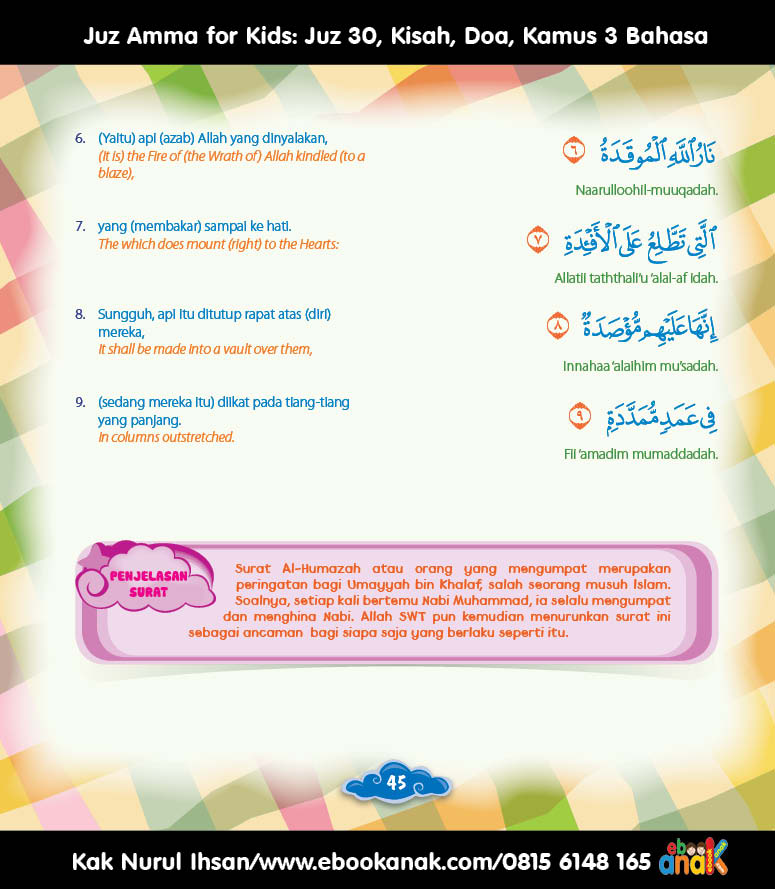 Juz Amma for Kids: Juz 30, Kisah, Doa, Kamus 3 Bahasa
6. (Yaitu) api (azab) Allah yang dinyalakan,
(It is) the Fire of (the Wrath of) Allah kindled (to a
blaze),
نَارُ ٱللَّهِ ٱلْمُوقَدَةُ ٦
Naarulloohil-muuqadah.
7. yang (membakar) sampai ke hati.
The which does mount (right) to the Hearts:
ٱلَّتِي تَطَّلِعُ عَلَى ٱلْأَفْـِٔدَةِ ٧
Allatii taththali'u 'alal-af idah.
8. Sungguh, api itu ditutup rapat atas (diri)
mereka,
It shall be made into a vault over them,
إِنَّهَا عَلَيْهِم مُّؤْصَدَةٌ ٨
Innahaa 'alaihim mu'sadah.
9. (sedang mereka itu) diikat pada tiang-tiang
yang panjang.
In columns outstretched.
فِي عَمَدٍ مُّمَدَّدَةٍ ٩
Fii 'amadim mumaddadah.
PENJELASAN
SURAT
Surat Al-Humazah atau orang yang mengumpat merupakan
peringatan bagi Umayyah bin Khalaf, salah seorang musuh Islam.
Soalnya, setiap kali bertemu Nabi Muhammad, ia selalu mengumpat
dan menghina Nabi. Allah SWT pun kemudian menurunkan surat ini
sebagai ancaman bagi siapa saja yang berlaku seperti itu.
45
Kak Nurul Ihsan/www.ebookanak.com/0815 6148 165
ebook
anak